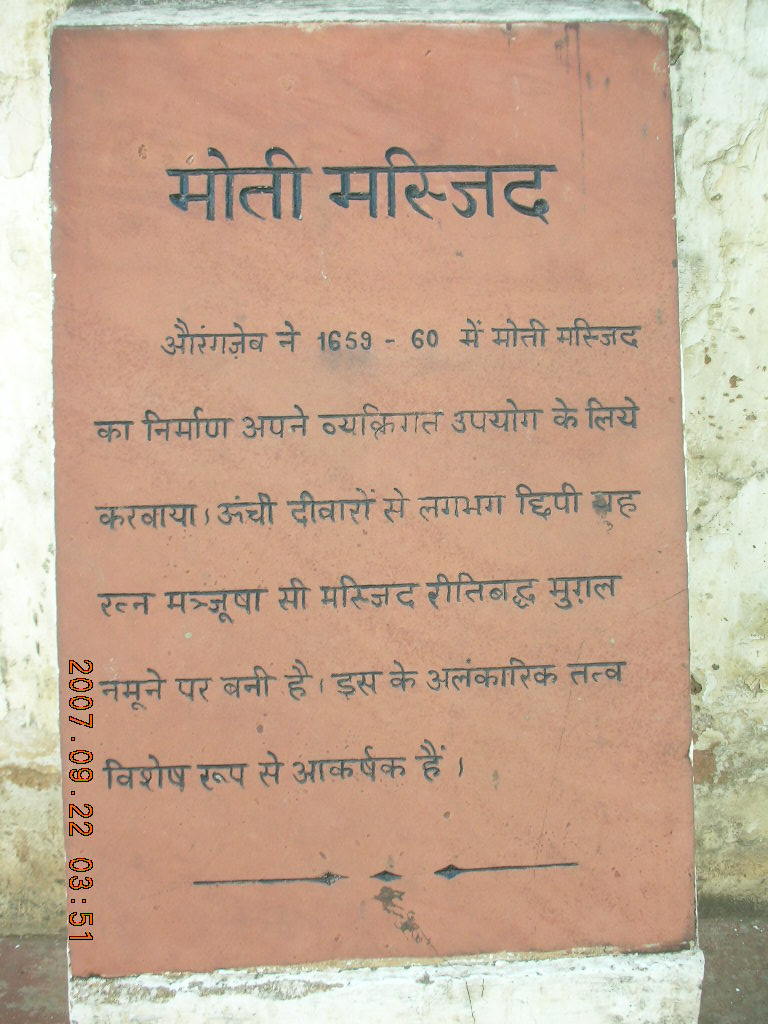 मोती मस्जिद
औरंगज़ेब ने 1659 - 60 में मोती मस्जिद
का निर्माण अपने व्यक्तिगत उपयोग के लिये
करवाया। ऊंची दीवारों से लगभग छिपी यह
रत्न मञ्जूषा सी मस्जिद रीतिबद्ध मुग़ल
नमूने पर बनी है। इस के अलंकारिक तत्व
विशेष रूप से आकर्षक हैं।
2007.09.22 03:51